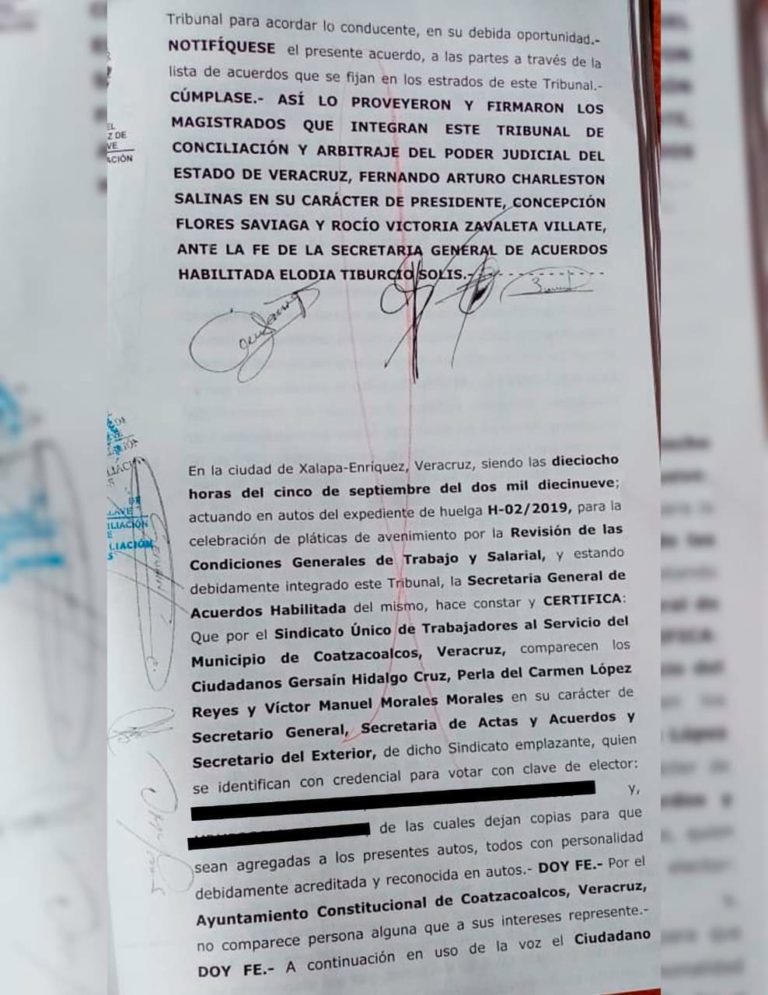 Tribunal para acordar lo conducente, en su debida oportunidad.-
NOTIFÍQUESE el presente acuerdo, a las partes a través de la
lista de acuerdos que se fijan en los estrados de este Tribunal.-
CÚMPLASE.- ASÍ LO PROVEYERON Y FIRMARON LOS
MAGISTRADOS QUE INTEGRAN ESTE TRIBUNAL DE
CONCILIACIÓN Y ARBITRAJE DEL PODER JUDICIAL DEL
ESTADO DE VERACRUZ, FERNANDO ARTURO CHARLESTON
SALINAS EN SU CARÁCTER DE PRESIDENTE, CONCEPCIÓN
FLORES SAVIAGA Y ROCÍO VICTORIA ZAVALETA VILLATE,
ANTE LA FE DE LA SECRETARIA GENERAL DE ACUERDOS
HABILITADA ELODIA TIBURCIO SOLIS.-
En la ciudad de Xalapa-Enríquez, Veracruz, siendo las dieciocho
horas del cinco de septiembre del dos mil diecinueve;
actuando en autos del expediente de huelga H-02/2019, para la
celebración de pláticas de avenimiento por la Revisión de las
Condiciones Generales de Trabajo y Salarial, y estando
debidamente integrado este Tribunal, la Secretaria General de
Acuerdos Habilitada del mismo, hace constar y CERTIFICA:
Que por el Sindicato Único de Trabajadores al Servicio del
Municipio de Coatzacoalcos, Veracruz, comparecen los
Ciudadanos Gersaín Hidalgo Cruz, Perla del Carmen López
Reyes y Víctor Manuel Morales Morales en su carácter de
Secretario General, Secretaria de Actas y Acuerdos y
Secretario del Exterior, de dicho Sindicato emplazante, quien
se identifican con credencial para votar con clave de elector:
y,
, de las cuales dejan copias para que
sean agregadas a los presentes autos, todos con personalidad
debidamente acreditada y reconocida en autos.- DOY FE.- Por el
Ayuntamiento Constitucional de Coatzacoalcos, Veracruz,
no comparece persona alguna que a sus intereses represente.-
DOY FE.- A continuación en uso de la voz el Ciudadano